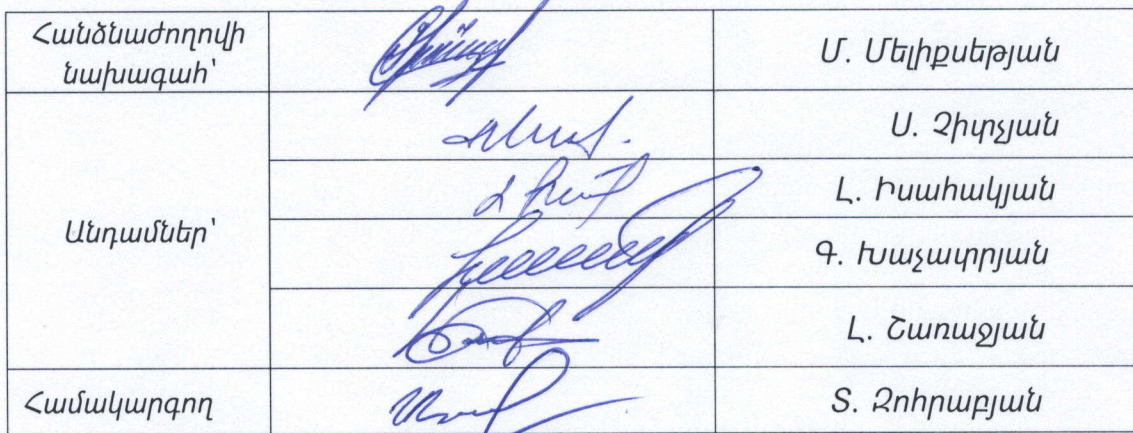 Հանձնաժողովի
նախագահ՝
Մ. Մելիքսեթյան
Անդամներ՝
Ս. Չիփչյան
Լ. Իսահակյան
Գ. Խաչատրյան
Լ. Շառաջյան
Համակարգող
Տ. Զոհրաբյան